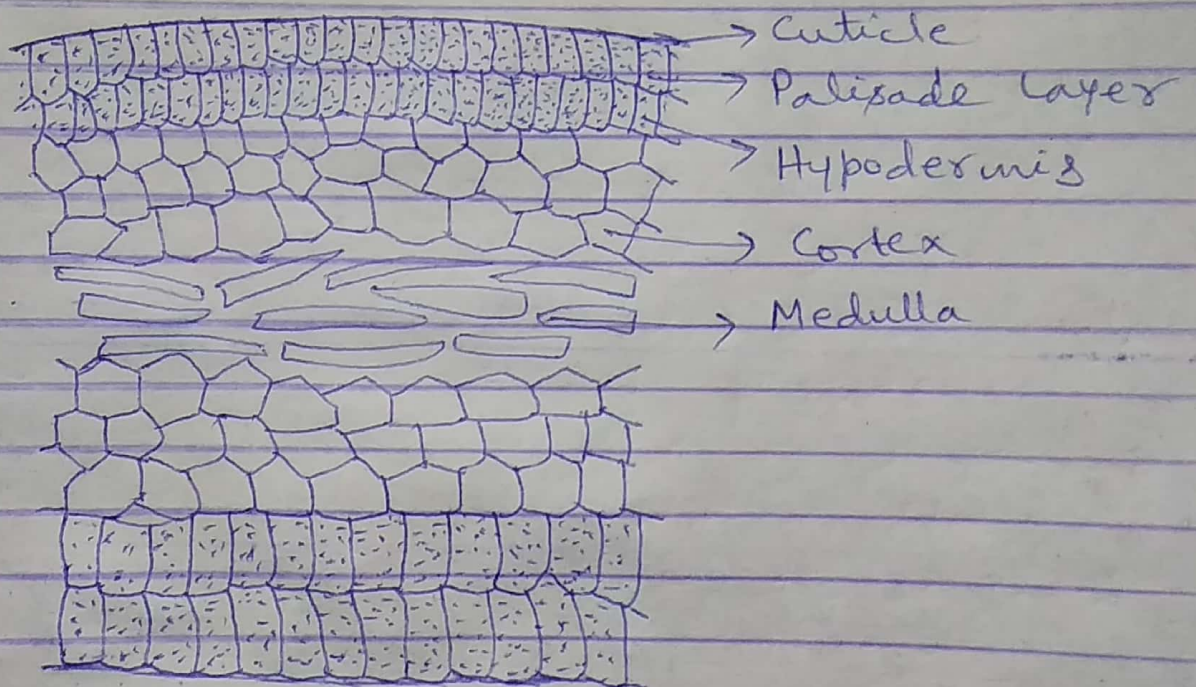 Cuticle
Palisade Layer
Hypodermis
Cortex
Medulla